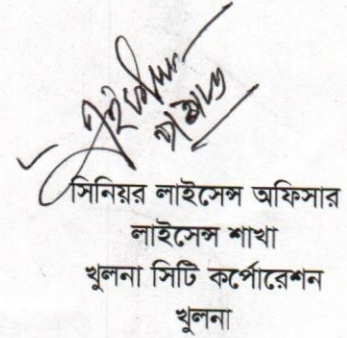 সিনিয়র লাইসেন্স অফিসার
লাইসেন্স শাখা
খুলনা সিটি কর্পোরেশন
খুলনা